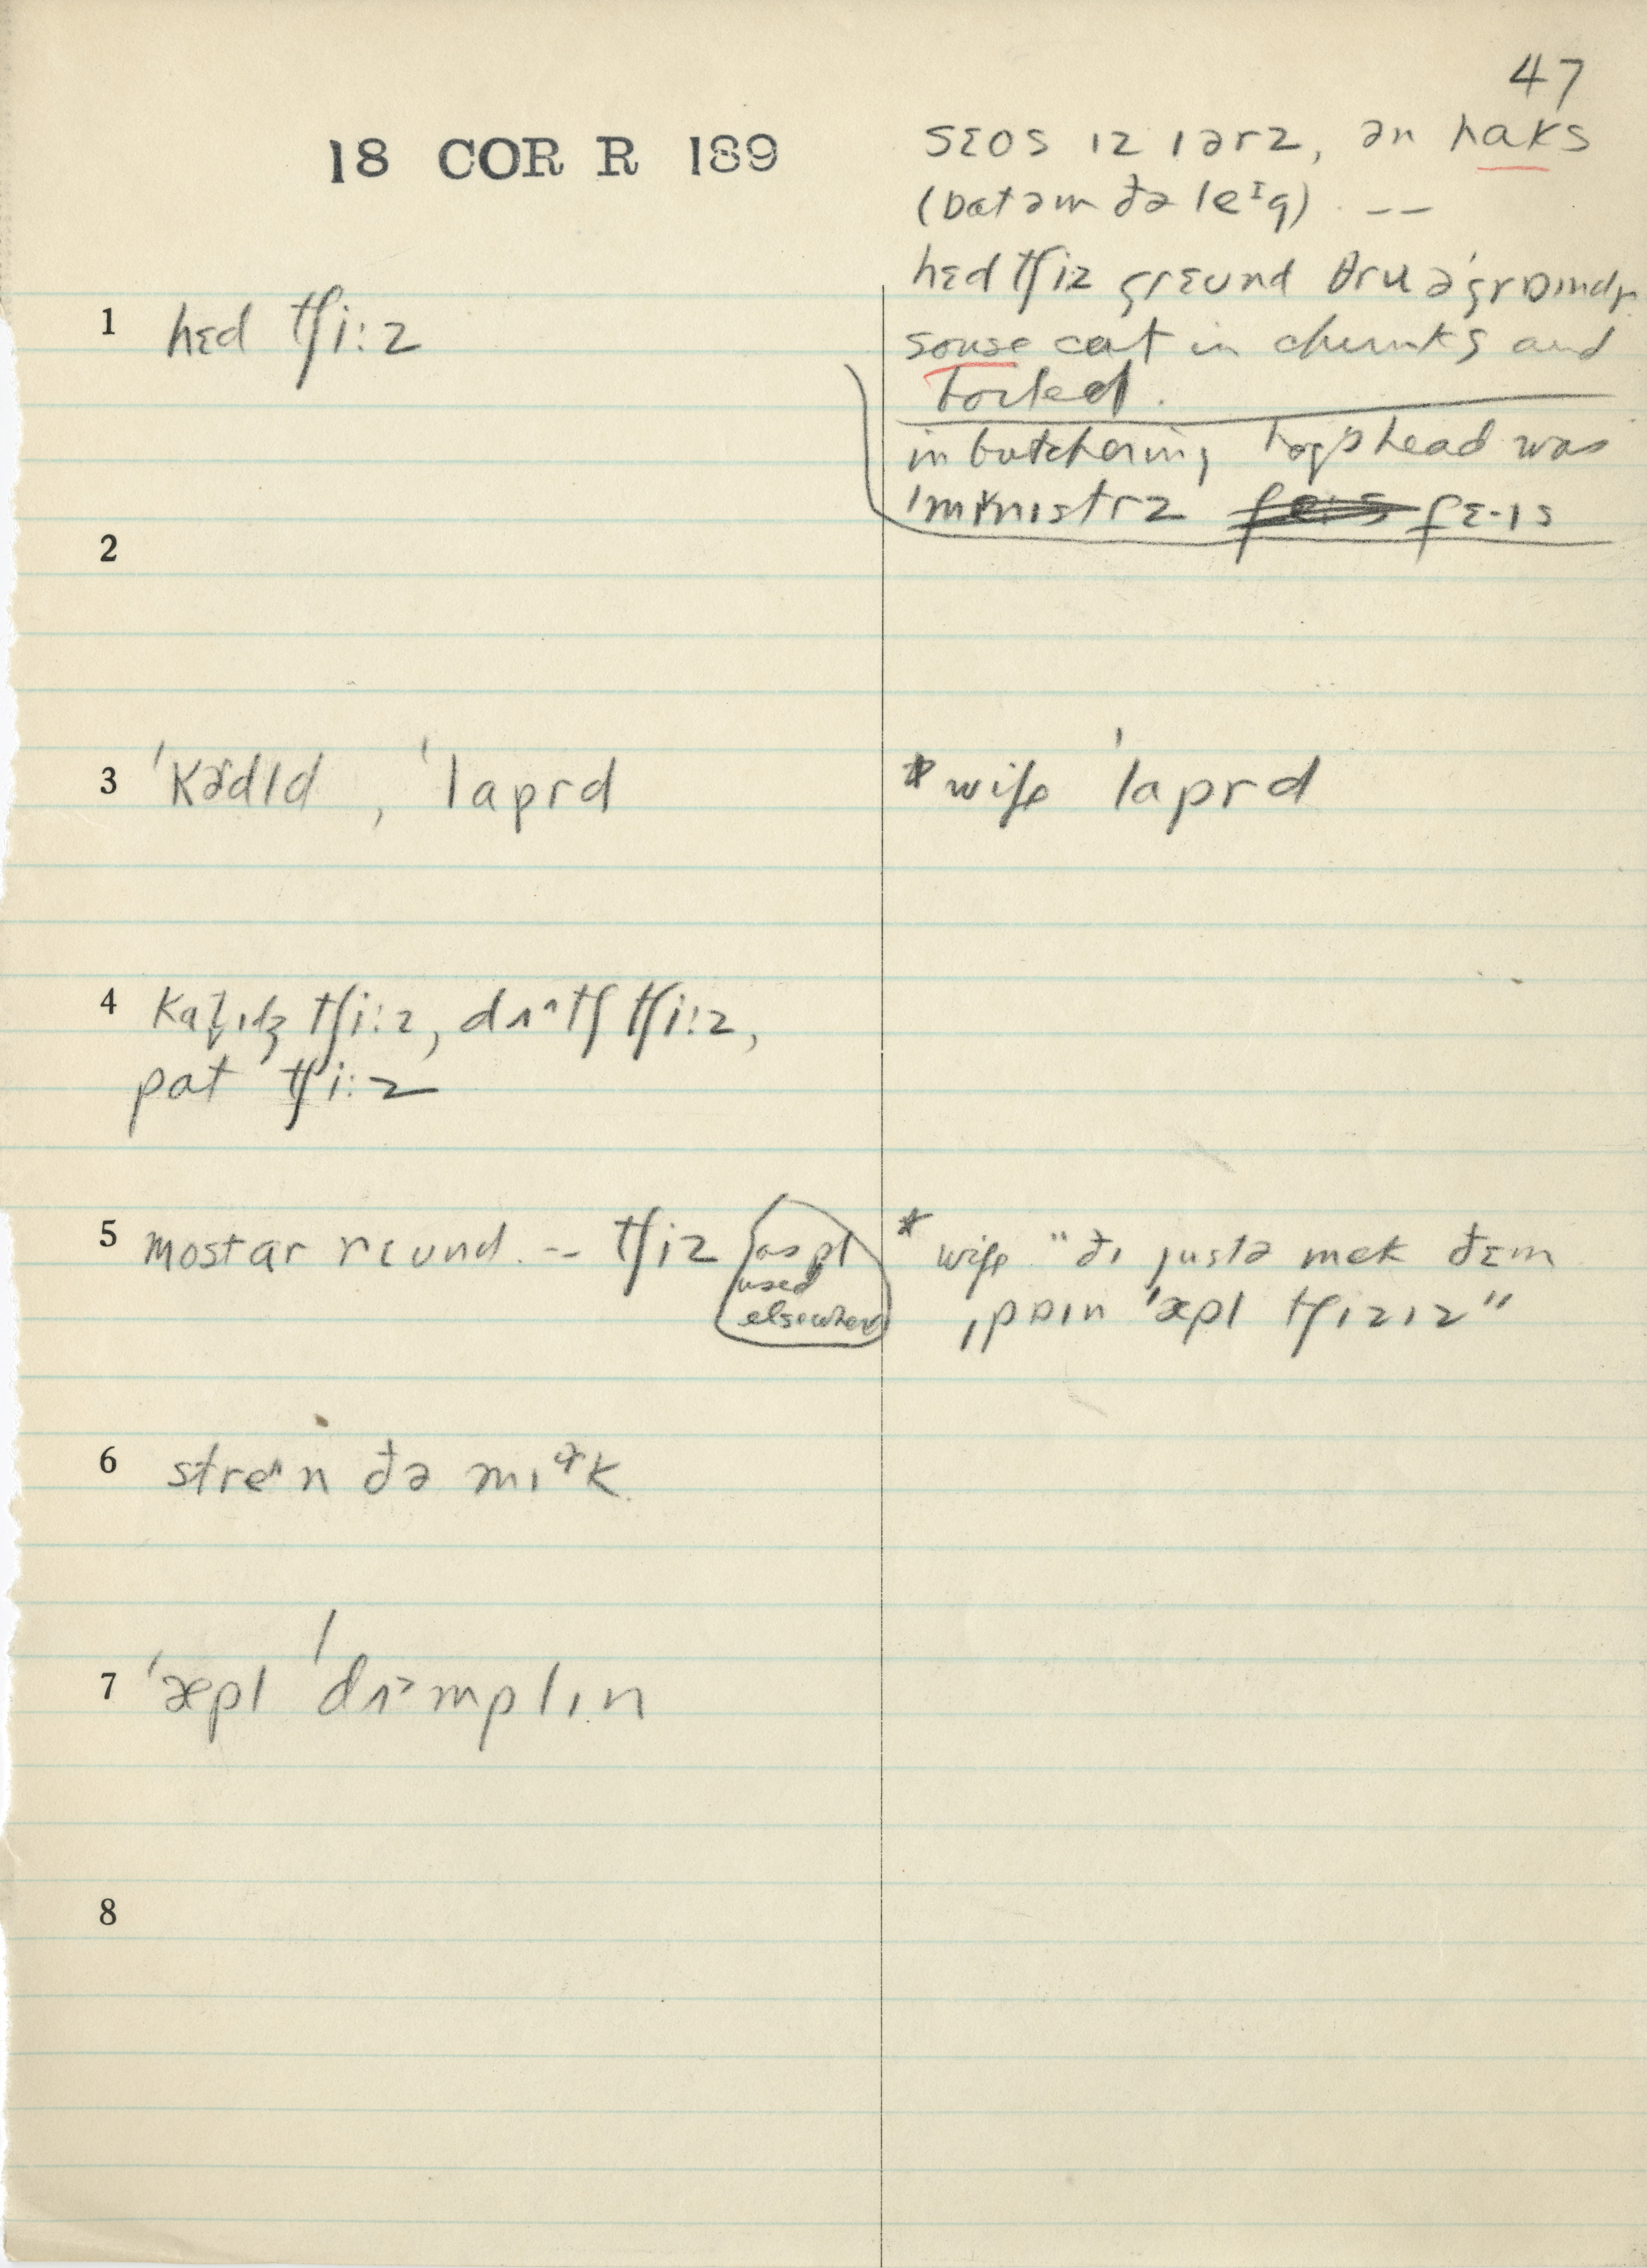 47
18 COR R 189
sɛos ɪz ɪərz, ən haks
(bɑtəm ðə leᶦg) --
hɛd tʃiz grɛund θru ə'graɪndr
souse cut in chunks and
boiled.
in butchering hog's head was
'mɪnɪstrz fɛ·ɪs
1 hɛd tʃi:z
2
3 'kɚdld, 'laprd
*wife 'laprd
4 tʃi:z, dʌ^tʃ tʃi:z,
pat tʃi:z
5 mostar rɛund. -- tʃiz as pl
used
elsewhere
* wife "ðɪ justə mek ðɛm
'æpl tʃizɪz"
6 stre^n ðə mɪᵊk
7 'æpl 'dʌ˃mplɪn
8